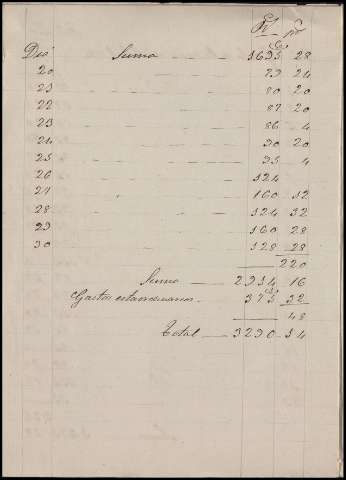 Suma 1695 28
20 79 24
21 80 20
22 87 20
23 86 4
24 90 20
25 95 4
26 124
27 160 12
28 124 32
29 160 28
30 128 28
220
Suma 2914 16
Gastos estraordinarios 375 32
48
Total 3290 14